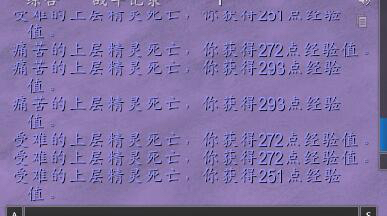 综合 战斗记录
受难的上层精灵死亡，你获得251点经验
值。
痛苦的上层精灵死亡，你获得272点经验值。
痛苦的上层精灵死亡，你获得293点经验
值。
痛苦的上层精灵死亡，你获得293点经验
值。
受难的上层精灵死亡，你获得272点经验值。
受难的上层精灵死亡，你获得272点经验值。
受难的上层精灵死亡，你获得251点经验
值。
A S